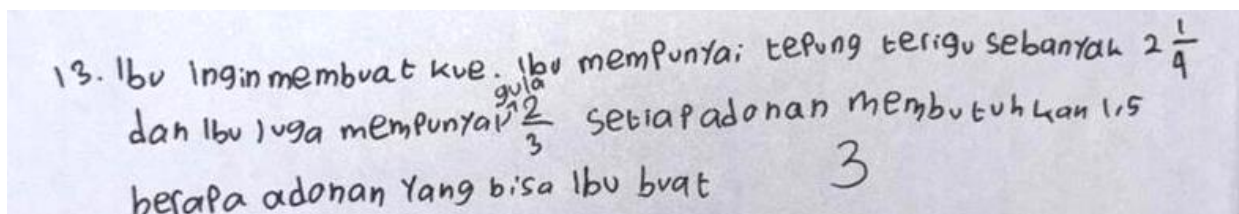 13. Ibu Ingin membuat kue. Ibu mempunyai tepung terigu sebanyak 2 1/4
dan Ibu Juga mempunyai gula 2/3 setiap adonan membutuhkan 1,5
berapa adonan Yang bisa Ibu buat 3